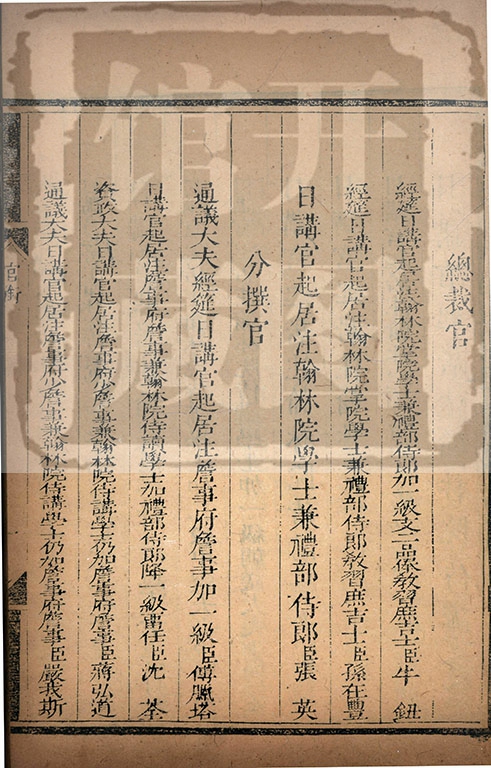 總裁官
經筵日講官起居注翰林院掌院學士兼禮部侍郎加一級支二品俸教習庶吉士臣牛鈕
經筵日講官起居注翰林院掌院學士兼禮部侍郎教習庶吉士臣孫在豐
日講官起居注翰林院學士兼禮部侍郎臣張英
分撰官
通議大夫經筵日講官起居注詹事府詹事加一級臣傅臘塔
日講官起居注詹事府詹事兼翰林院侍讀學士加禮部侍郎降一級留任臣沈荃
資政大夫日講官起居注詹事府少詹事兼翰林院侍講學士仍加詹事府詹事臣蔣弘道
通議大夫日講官起居注詹事府少詹事兼翰林院侍講學士仍加詹事府詹事臣嚴我斯
官銜